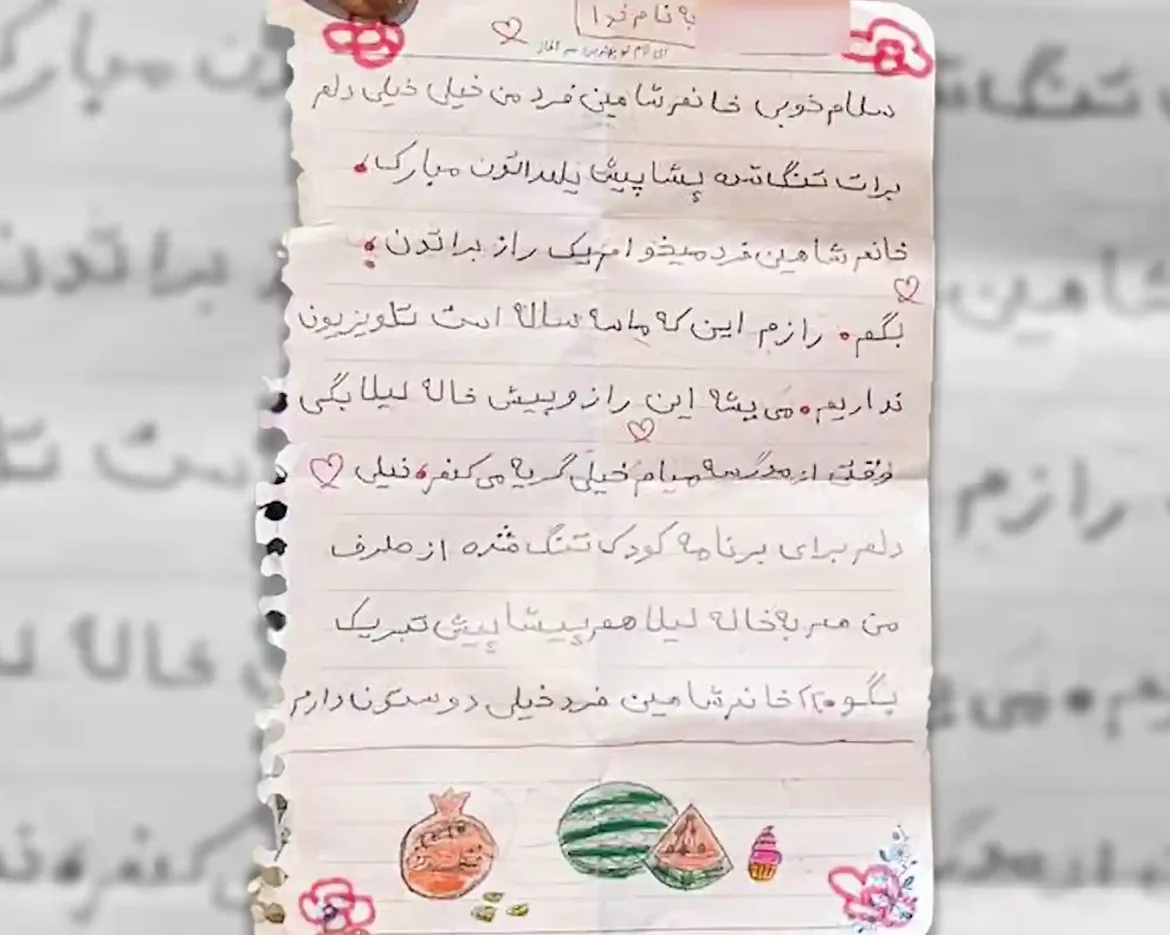 به نام خدا
ای نام تو بهترین سر آغاز
سلام خوبی خانم شاهین فرد من خیلی خیلی دلم
برات تنگ شده پیشاپیش یلداتون مبارک.
خانم شاهین فرد میخوام یک راز براتون
بگم. رازم این که ما سه ساله است تلویزیون
نداریم. می‌شه این راز و پیش خاله لیلا بگی
وقتی از مدرسه میام خیلی گریه می‌کنم. خیلی
دلم برای برنامه کودک تنگ شده از طرف
من هم به خاله لیلا هم پیشاپیش تبریک
بگو خانم شاهین فرد خیلی دوستون دارم